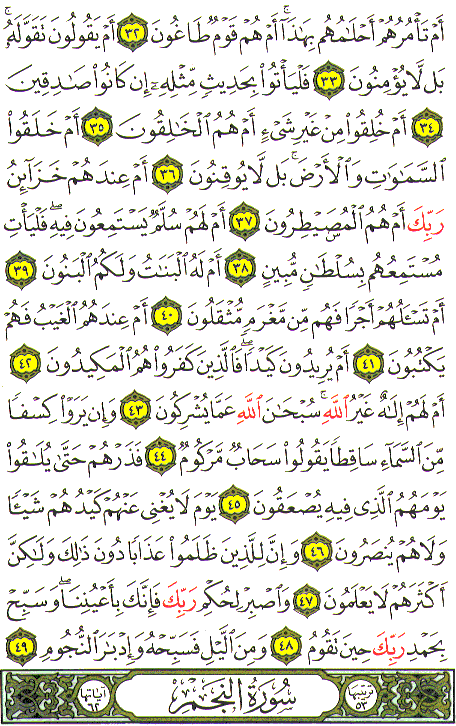 أَمْ تَأْمُرُهُمْ أَحْلَـٰمُهُم بِهَـٰذَآ ۚ أَمْ هُمْ قَوْمٌ طَاغُونَ ٣٢ أَمْ يَقُولُونَ تَقَوَّلَهُۥ ۚ
بَل لَّا يُؤْمِنُونَ ٣٣ فَلْيَأْتُوا۟ بِحَدِيثٍ مِّثْلِهِۦٓ إِن كَانُوا۟ صَـٰدِقِينَ
٣٤ أَمْ خُلِقُوا۟ مِنْ غَيْرِ شَىْءٍ أَمْ هُمُ ٱلْخَـٰلِقُونَ ٣٥ أَمْ خَلَقُوا۟
ٱلسَّمَـٰوَٰتِ وَٱلْأَرْضَ ۚ بَل لَّا يُوقِنُونَ ٣٦ أَمْ عِندَهُمْ خَزَآئِنُ
رَبِّكَ أَمْ هُمُ ٱلْمُصَۣيْطِرُونَ ٣٧ أَمْ لَهُمْ سُلَّمٌ يَسْتَمِعُونَ فِيهِ ۖ فَلْيَأْتِ
مُسْتَمِعُهُم بِسُلْطَـٰنٍ مُّبِينٍ ٣٨ أَمْ لَهُ ٱلْبَنَـٰتُ وَلَكُمُ ٱلْبَنُونَ ٣٩
أَمْ تَسْـَٔلُهُمْ أَجْرًا فَهُم مِّن مَّغْرَمٍ مُّثْقَلُونَ ٤٠ أَمْ عِندَهُمُ ٱلْغَيْبُ فَهُمْ
يَكْتُبُونَ ٤١ أَمْ يُرِيدُونَ كَيْدًا ۖ فَٱلَّذِينَ كَفَرُوا۟ هُمُ ٱلْمَكِيدُونَ ٤٢
أَمْ لَهُمْ إِلَـٰهٌ غَيْرُ ٱللَّهِ ۚ سُبْحَـٰنَ ٱللَّهِ عَمَّا يُشْرِكُونَ ٤٣ وَإِن يَرَوْا۟ كِسْفًا
مِّنَ ٱلسَّمَآءِ سَاقِطًا يَقُولُوا۟ سَحَابٌ مَّرْكُومٌ ٤٤ فَذَرْهُمْ حَتَّىٰ يُلَـٰقُوا۟
يَوْمَهُمُ ٱلَّذِى فِيهِ يُصْعَقُونَ ٤٥ يَوْمَ لَا يُغْنِى عَنْهُمْ كَيْدُهُمْ شَيْـًٔا
وَلَا هُمْ يُنصَرُونَ ٤٦ وَإِنَّ لِلَّذِينَ ظَلَمُوا۟ عَذَابًا دُونَ ذَٰلِكَ وَلَـٰكِنَّ
أَكْثَرَهُمْ لَا يَعْلَمُونَ ٤٧ وَٱصْبِرْ لِحُكْمِ رَبِّكَ فَإِنَّكَ بِأَعْيُنِنَا ۖ وَسَبِّحْ
بِحَمْدِ رَبِّكَ حِينَ تَقُومُ ٤٨ وَمِنَ ٱلَّيْلِ فَسَبِّحْهُ وَإِدْبَـٰرَ ٱلنُّجُومِ ٤٩
ترتيبها ٥٣ سُورَةُ النَّجْمِ آياتها ٦٢